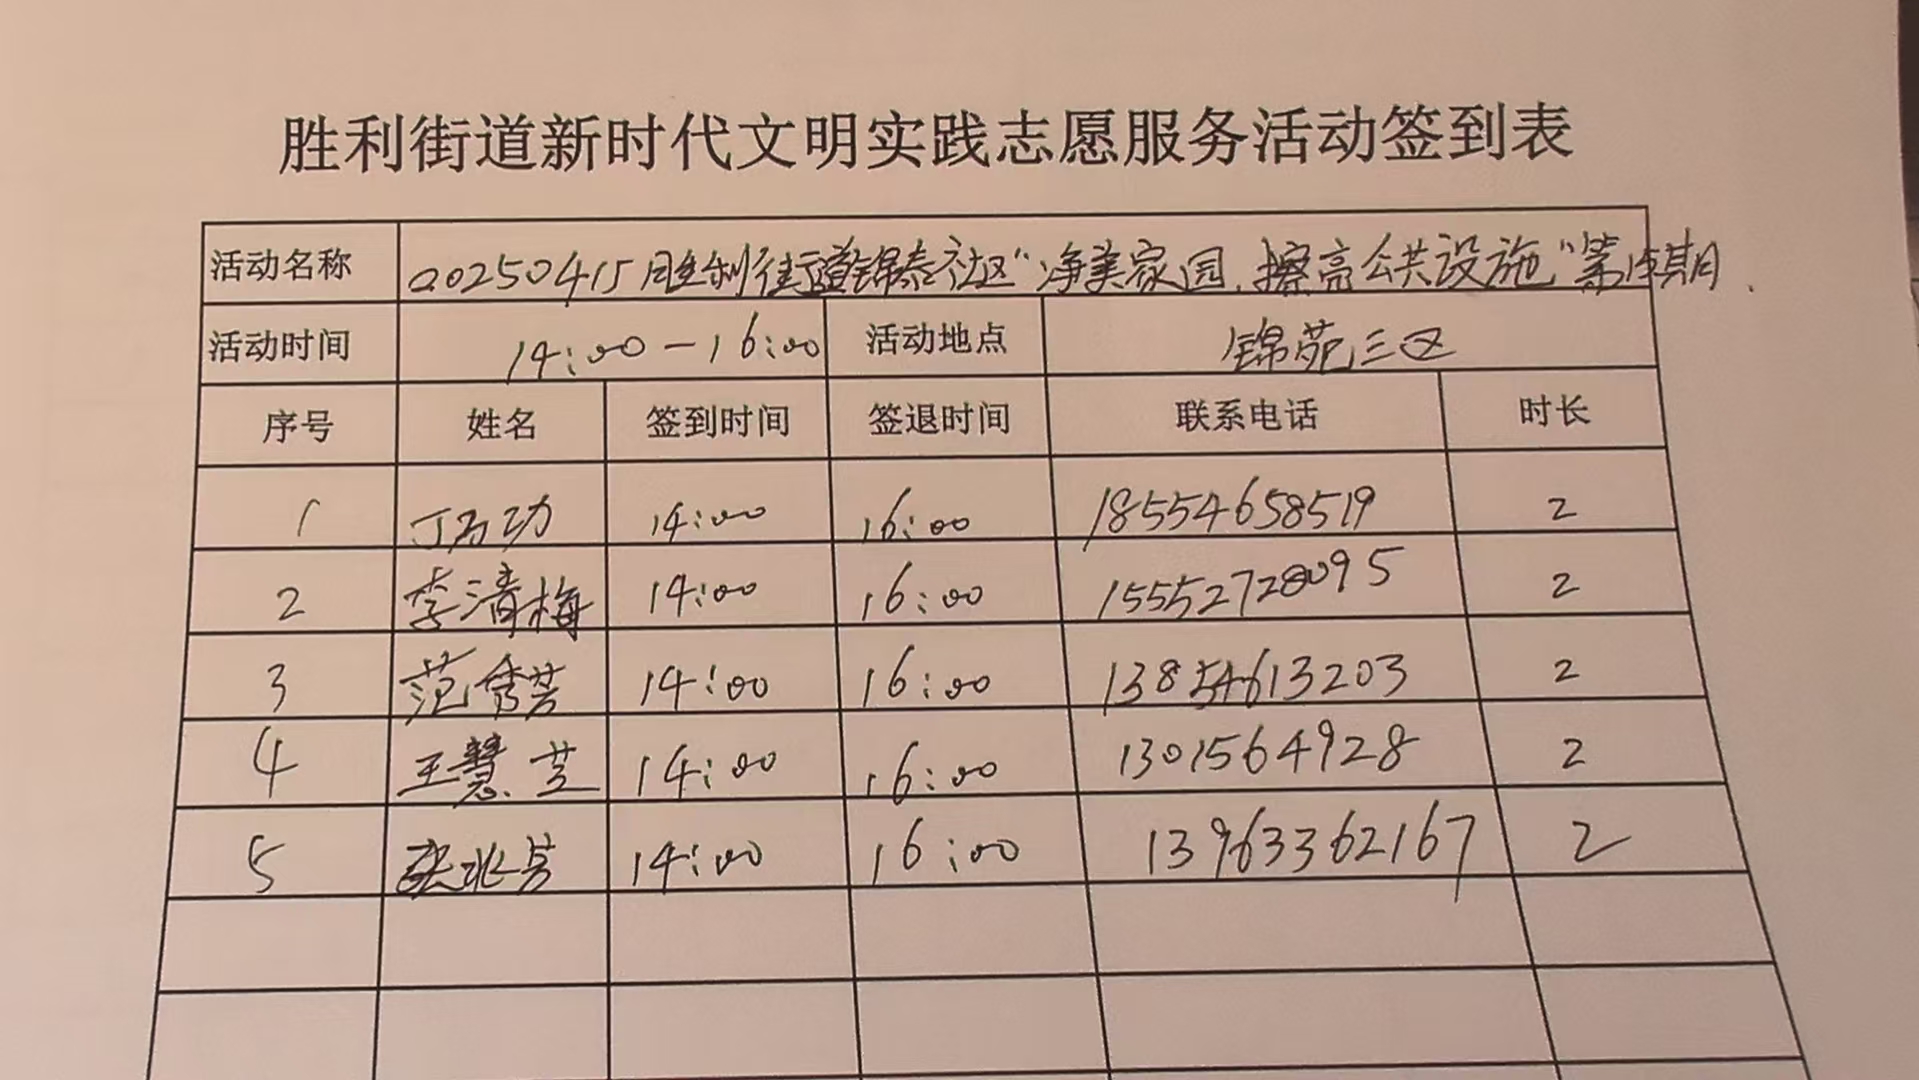 胜利街道新时代文明实践志愿服务活动签到表
活动名称 20250415胜利街道锦泰社区"净美家园,擦亮公共设施"第 期.
活动时间 14:00-16:00 活动地点 锦苑三区
序号 姓名 签到时间 签退时间 联系电话 时长
1 丁 功 14:00 16:00 18554658519 2
2 李清梅 14:00 16:00 15552728095 2
3 范秀芸 14:00 16:00 13854613203 2
4 王慧芝 14:00 16:00 1301564928 2
5 张兆芳 14:00 16:00 13963362167 2